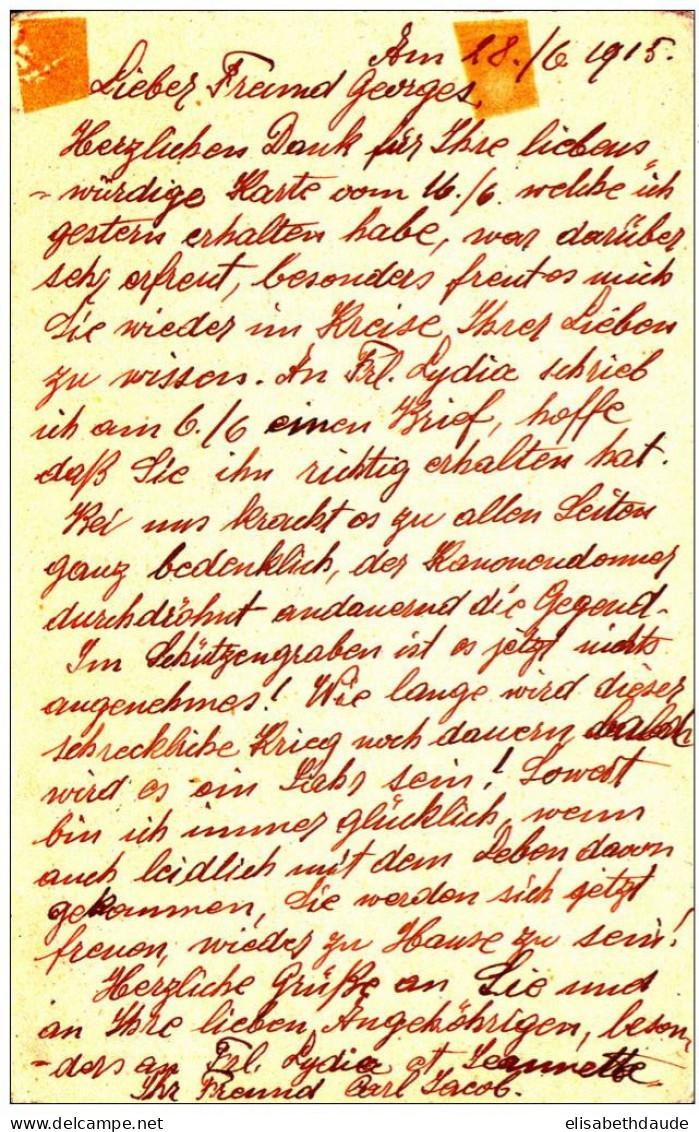 Am 28./6. 1915.
Lieber Freund Georges,
Herzlichen Dank für Ihre liebens
-würdige Karte vom 16./6. welche ich
gestern erhalten habe, war darüber
sehr erfreut, besonders freut es mich
Sie wieder im Kreise Ihrer Lieben
zu wissen. An Frl. Lydia schrieb
ich am 6./6 einen Brief, hoffe
daß Sie ihn richtig erhalten hat.
Bei uns kracht es zu allen Seiten
ganz bedenklich, der Kanonendonner
durchdröhnt andauernd die Gegend.
Im Schützengraben ist es jetzt nichts
angenehmes! Wie lange wird dieser
schreckliche Krieg noch dauern
wird es ein Jahr sein! Soweit
bin ich immer glücklich, wenn
auch leidlich mit dem Leben davon
gekommen, Sie werden sich jetzt
freuen, wieder zu Hause zu sein!
Herzliche Grüße an Sie und
an Ihre lieben Angehöhrigen, beson
-ders an Frl. Lydia et Jeannette
Ihr Freund Carl Jacob.
elisabethdaude